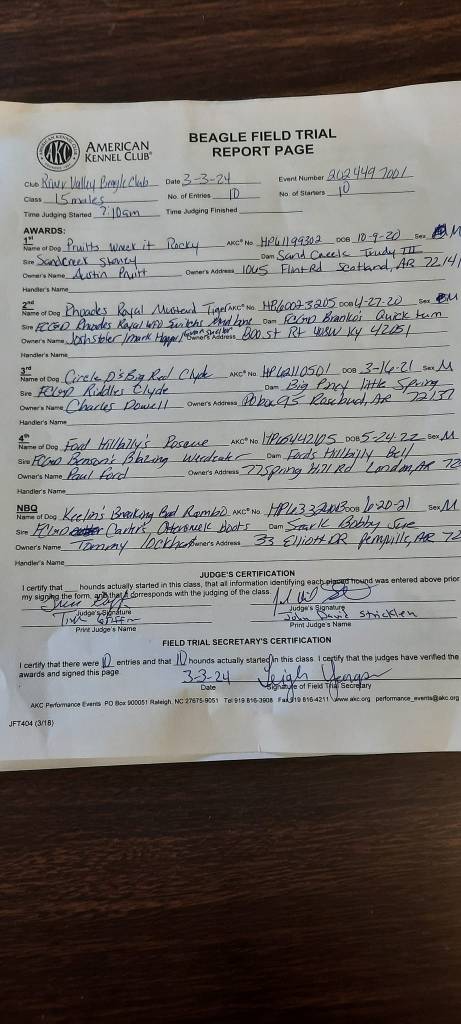 AMERICAN KENNEL CLUB®
BEAGLE FIELD TRIAL
REPORT PAGE
Club River Valley Beagle Club Date 3-3-24 Event Number 2024497001
Class 15 males No. of Entries 10 No. of Starters 10
Time Judging Started 7:10am Time Judging Finished
AWARDS:
1st
Name of Dog Pruitts Wreck it Rocky AKC® No. HP61199302 DOB 10-9-20 Sex M
Sire Sandcreek Stoney Dam Sand Creeks Trudy III
Owner's Name Austin Pruitt Owner's Address 1065 Flint Rd Scotland, AR 72141
Handler's Name
2nd
Name of Dog Rhoades Royal Mustard Tiger AKC® No. HP60023205 DOB 4-27-20 Sex M
Sire FCGD Rhodes Royal Dam FCGD Branko's Quick turn
Owner's Name Josh sloter / mark Hoppel Owner's Address 800 St Rt 408W KY 42051
Handler's Name
3rd
Name of Dog Circle D's Big Red Clyde AKC® No. HP62110501 DOB 3-16-21 Sex M
Sire FCGD Riddles Clyde Dam Big Piney little Spring
Owner's Name Charles Dowell Owner's Address PO box 95 Rosebud, AR 72137
Handler's Name
4th
Name of Dog Ford Hillbilly's Posque AKC® No. HP65442105 DOB 5-24-22 Sex M
Sire FCGD Benson's Blazing Weedeater Dam Fords Hillbilly Bell
Owner's Name Paul Ford Owner's Address 77 Spring Hill Rd London, AR 72
Handler's Name
NBQ
Name of Dog Keelin's Breaking Bad Rambo AKC® No. DOB 6-20-21 Sex M
Sire Carter's Boots Dam Stark Bobby Sue
Owner's Name Tommy lockhart Owner's Address 33 Elliott DR AR 72
Handler's Name
JUDGE'S CERTIFICATION
I certify that hounds actually started in this class, that all information identifying each placed hound was entered above prior
my signing the form, and that it corresponds with the judging of the class.
Judge's Signature Judge's Signature
Tim Griffin John David Stricklen
Print Judge's Name Print Judge's Name
FIELD TRIAL SECRETARY'S CERTIFICATION
I certify that there were 10 entries and that 10 hounds actually started in this class. I certify that the judges have verified the
awards and signed this page.
3-3-24 Leigh
Date Signature of Field Trial Secretary
AKC Performance Events PO Box 900051 Raleigh, NC 27675-9051 Tel 919 816-3908 Fax 919 816-4211 www.akc.org performance_events@akc.org
JFT404 (3/18)